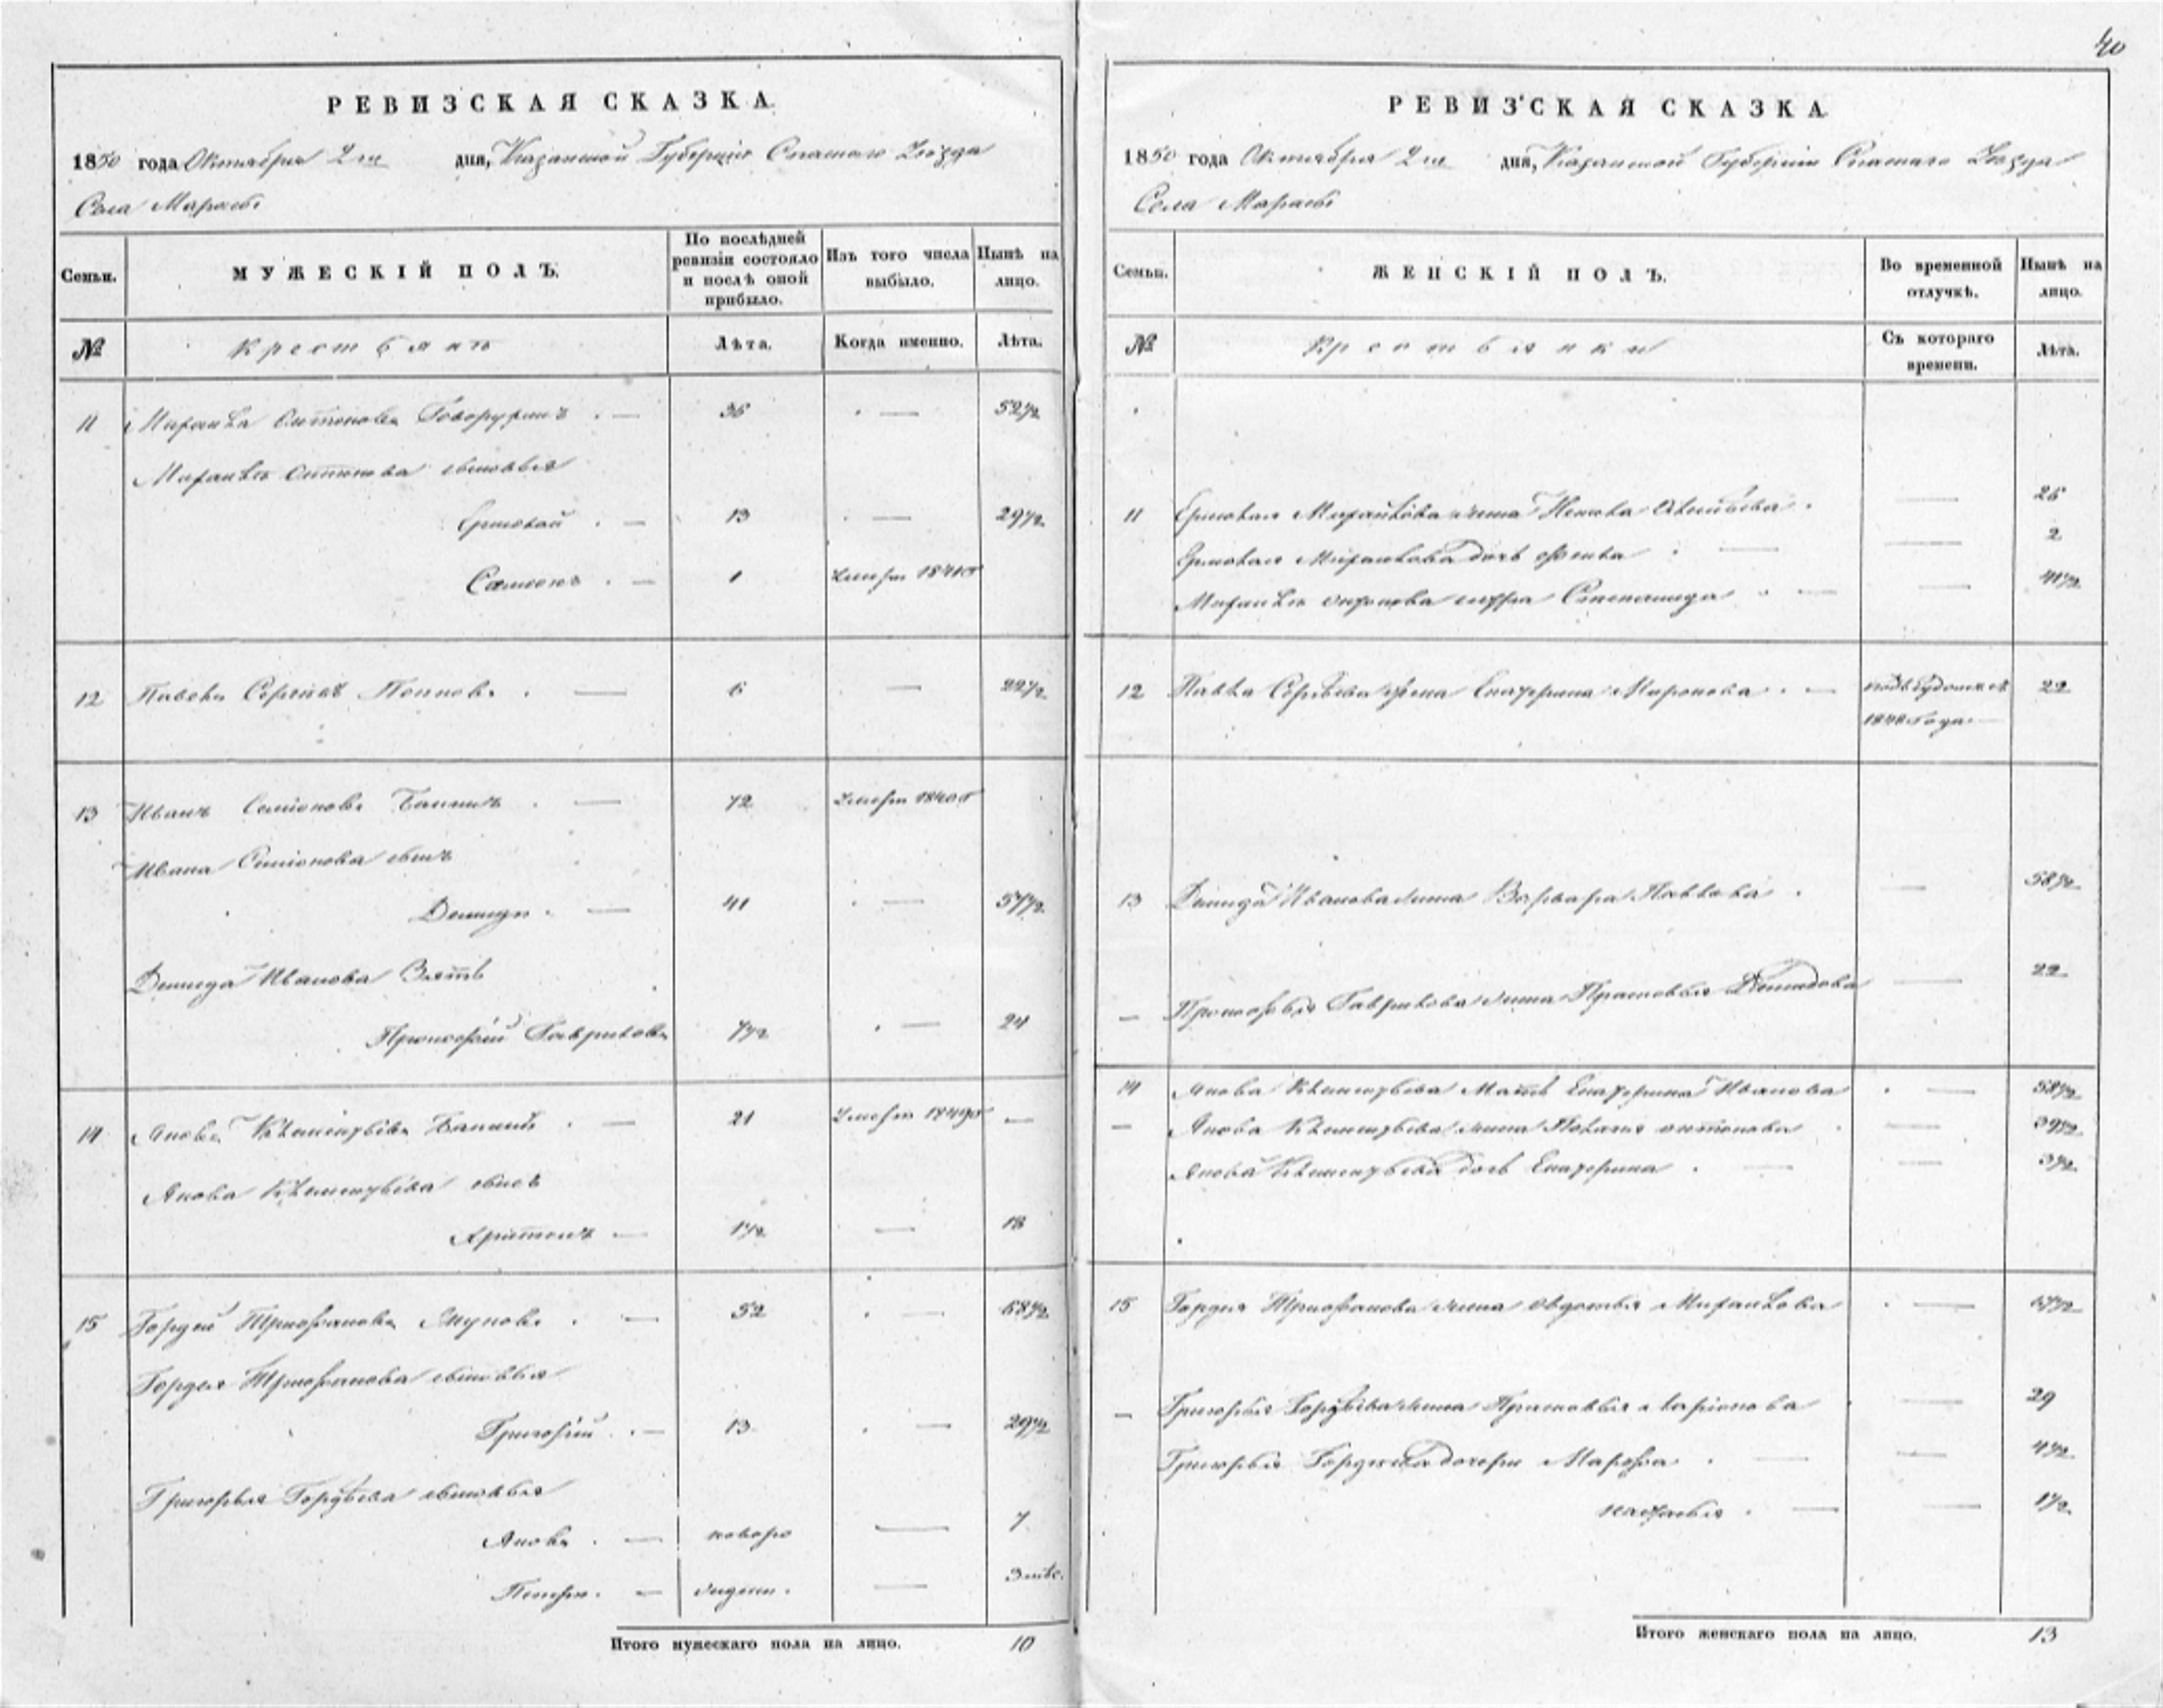 40
РЕВИЗСКАЯ СКАЗКА.
1850 года Октября 2 го дня, Казанской Губернии Спаскаго Уѣзда
Села Марасы
Сеньи.
МУЖЕСКІЙ ПОЛЪ.
По послѣдней ревизіи состояло и послѣ оной прибыло.
Изъ того числа выбыло.
Нынѣ на лицо.
№
Крестьянъ
Лѣта.
Когда именно.
Лѣта.
11 Михаила Антоновъ 36 — 52½
Михаила Антонова сыновья
Ермолай 13 — 29½
Самсонъ 1 Умеръ 1841 г
12 Павелъ Сергѣевъ Поповъ 6 — 22½
13 Иванъ Семіоновъ 72 Умеръ 1840 г
Ивана Семіонова сынъ
Демидъ 41 — 57½
Демида Иванова Зять
Прокофій Гавриловъ 7½ — 24
14 Яковъ Клементьевъ 21 Умеръ 1849 г —
Якова Клементьева сынъ
Харитонъ 1½ — 18
15 Гордей Трофимовъ 52 — 68½
Гордея Трофимова сыновья
Григорій 13 — 29½
Григорья Гордѣева сыновья
Яковъ новоро — 7
Петръ ждены — 3 мѣс.
Итого мужескаго пола на лицо. 10
РЕВИЗСКАЯ СКАЗКА.
1850 года Октября 2 го дня, Казанской Губернии Спаскаго Уѣзда
Села Марасы
Сеньи.
ЖЕНСКІЙ ПОЛЪ.
Во временной отлучкѣ.
Нынѣ на лицо.
№
Крестьянки
Съ котораго времени.
Лѣта.
11 Ермолая Михайлова жена — 26
Ермолая Михайлова дочь — 2
Михаила Степанида — 41½
12 Павла Сергѣева жена Екатерина Миронова 22
1848 года
13 Демида Иванова жена Варвара Павлова — 58½
— Прокофья Гаврилова жена Прасковья Демидова — 22
14 Якова Клементьева Мать Екатерина Иванова — 58½
— Якова Клементьева жена Антонова — 39½
Якова Клементьева дочь Екатерина — 3½
15 Гордея Трофимова жена Авдотья Михайлова —
— Григорья Гордѣева жена Прасковья Ларіонова — 29
Григорья Гордѣева дочери Марфа — 4½
Настасья — 1½
Итого женскаго пола на лицо. 13